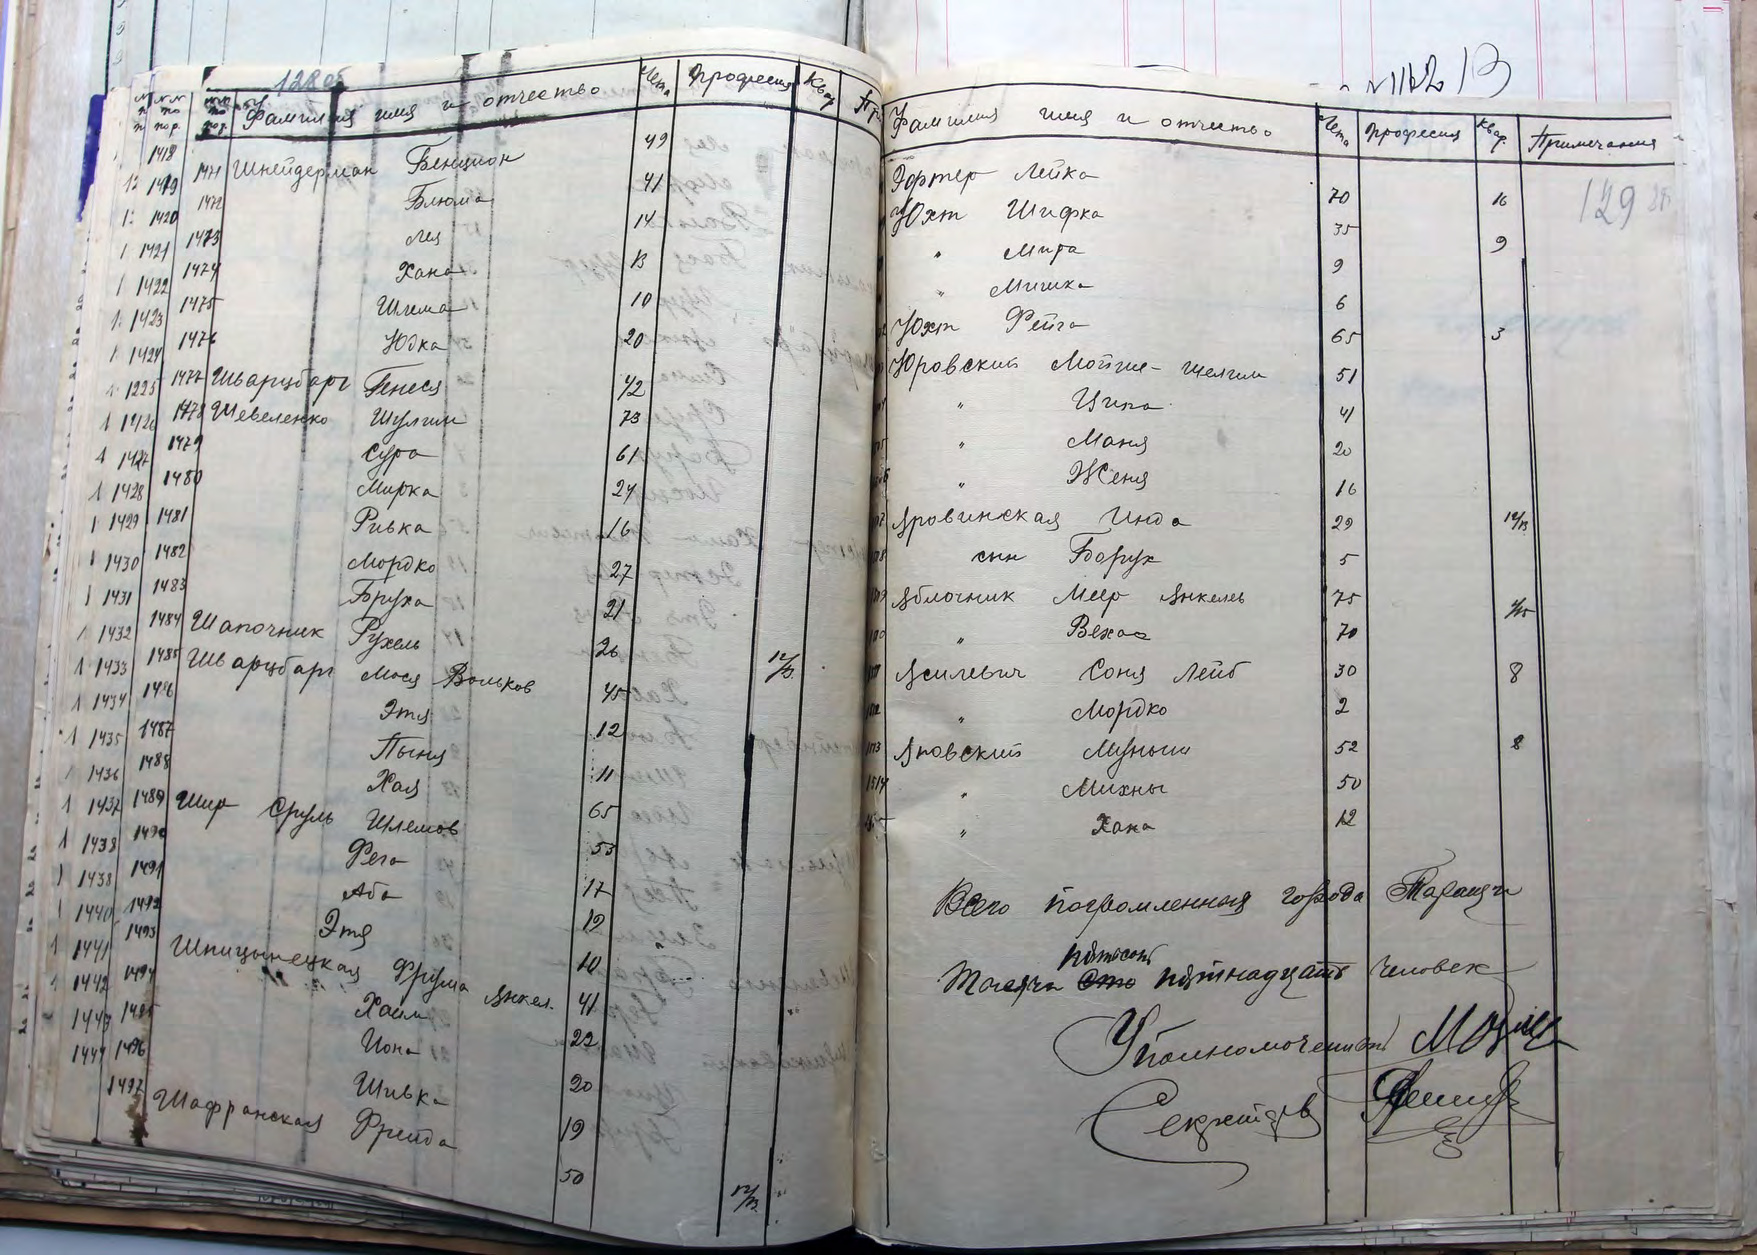 128 об
Фамилия имя и отчество Лета Профессия Квар. Пр
1418 1471 Шнейдерман Бенцион 49
1419 1472 Блюма 41
1420 1473 Лея 14
1421 1474 Хана 13
1422 1475 Шлема 10
1423 1476 Юдка 20
1424 1477 Шварцбарг Генеся 42
1225 1478 Шевеленко Шулим 73
1426 1479 Сура 61
1427 1480 Мирка 24
1428 1481 Ривка 16
1429 1482 Мордко 27
1430 1483 Бруха 21
1431 1484 Шапочник Рухель 26 12/13
1432 1485 Шварцбарг Мося Вольков 45
1433 1486 Этя 12
1434 1487 Пыня 11
1435 1488 Хая
1436 1489 Шир Сруль Шлемов 65
1437 1490 Рега 55
1438 1491 Аба 17
1438 1492 Этя 19
1440 1493 Шпицынецкая Фрума Янкел. 41
1441 1494 Хаим 22
1442 1495 Иона 20
1443 1496 Шивка 19
1444 1497 Шафранская Фрейда 50 12/13
Фамилия имя и отчество Лета Профессия Квар. Примечания
129
Эфтер Лейка 70 16
Юхт Шифка 35 9
" Мира 9
" Мишка 6
Юхт Фейга 65 3
Юровский Мойше-Шелим 51
" Ципа 41
" Маня 20
" Женя 16
Яровинская Инда 29 12/13
сын Борух 5
Яблочник Меер Янкелев 75 4/15
" Вехаа 70
Ясилевич Соня Лейб 30 8
" Мордко 2
Яновский Муныш 52 8
1514 " Михны 50
" Хана 12
Всего погромленных города Таращи
пятьсот
Тысяча сто пятнадцать человек
Уполномоченный
Секретарь